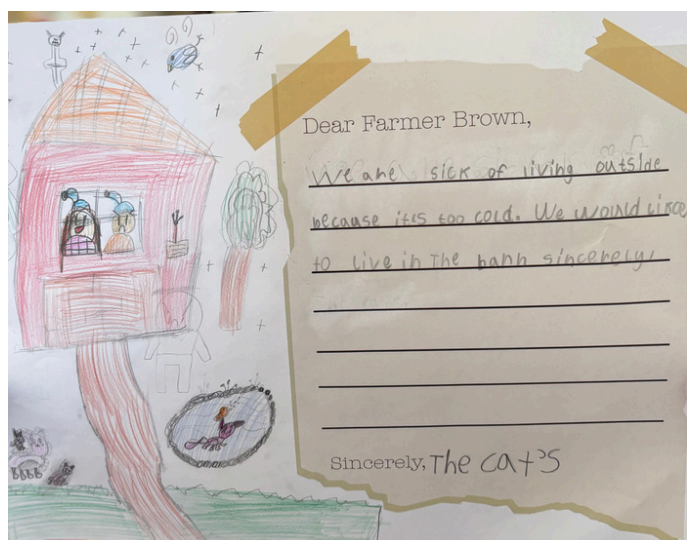 Dear Farmer Brown,
We are sick of living outside
because it's too cold. We would like
to live in The barn sincerely,
Sincerely, The cat's